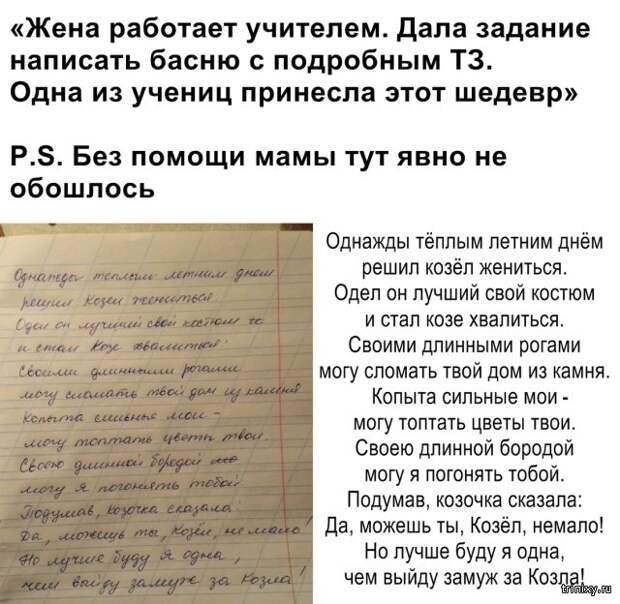 «Жена работает учителем. Дала задание
написать басню с подробным ТЗ.
Одна из учениц принесла этот шедевр»
P.S. Без помощи мамы тут явно не
обошлось
Однажды теплым летним днем
решил Козел жениться.
Одел он лучший свой костюм
и стал Козе хвалиться:
Своими длинными рогами
могу сломать твой дом из камня
Копыта сильные мои -
могу топтать цветы твои.
Своею длинной бородой
могу я погонять тобой
Подумав, Козочка сказала:
Да, можешь ты, Козёл, немало!
Но лучше буду я одна,
чем выйду замуж за Козла!
Однажды тёплым летним днём
решил козёл жениться.
Одел он лучший свой костюм
и стал козе хвалиться.
Своими длинными рогами
могу сломать твой дом из камня.
Копыта сильные мои -
могу топтать цветы твои.
Своею длинной бородой
могу я погонять тобой.
Подумав, козочка сказала:
Да, можешь ты, Козёл, немало!
Но лучше буду я одна,
чем выйду замуж за Козла!
trinixy.ru